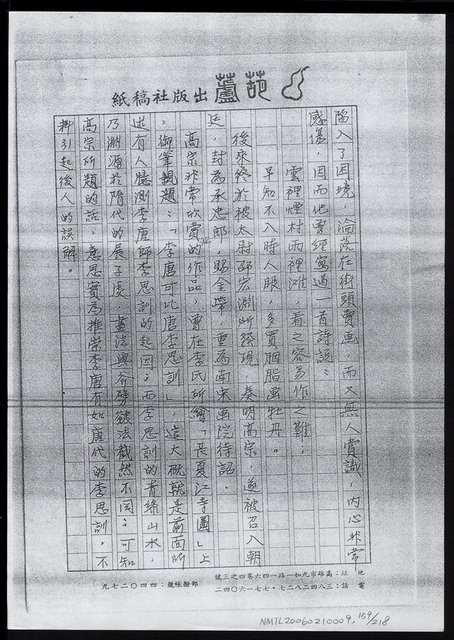 葫蘆出版社稿紙
陷入了困境，淪落在街頭賣畫，而又無人賞識，內心非常
感嘆，因而他曾經寫過一首詩說：
雲裡煙村雨裡灘，看之容易作之難；
早知不入時人眼，多買胭脂畫牡丹。
後來終於被太尉邵宏淵所發現，奏明高宗，遂被召入朝
廷，封為承忠郎，賜金帶，更為南宋畫院待詔。
高宗非常欣賞他的作品，曾在李氏所繪「長夏江寺圖」上
，御筆親題：「李唐可比唐李思訓」，這大概就是前面所
述有人臆測李唐師李思訓的起因；而李思訓的青綠山水，
乃淵源於隋代的展子虔，畫法與斧劈皴法截然不同。可知
高宗所題的話，意思實為推崇李唐有如唐代的李思訓，不
料引起後人的誤解。
地址：高雄市九如一路一四六巷四之三號
電話：三八四二八二七·七七一六〇四二
郵撥帳號：四四〇二七九
NMTL20060210009, 159/218